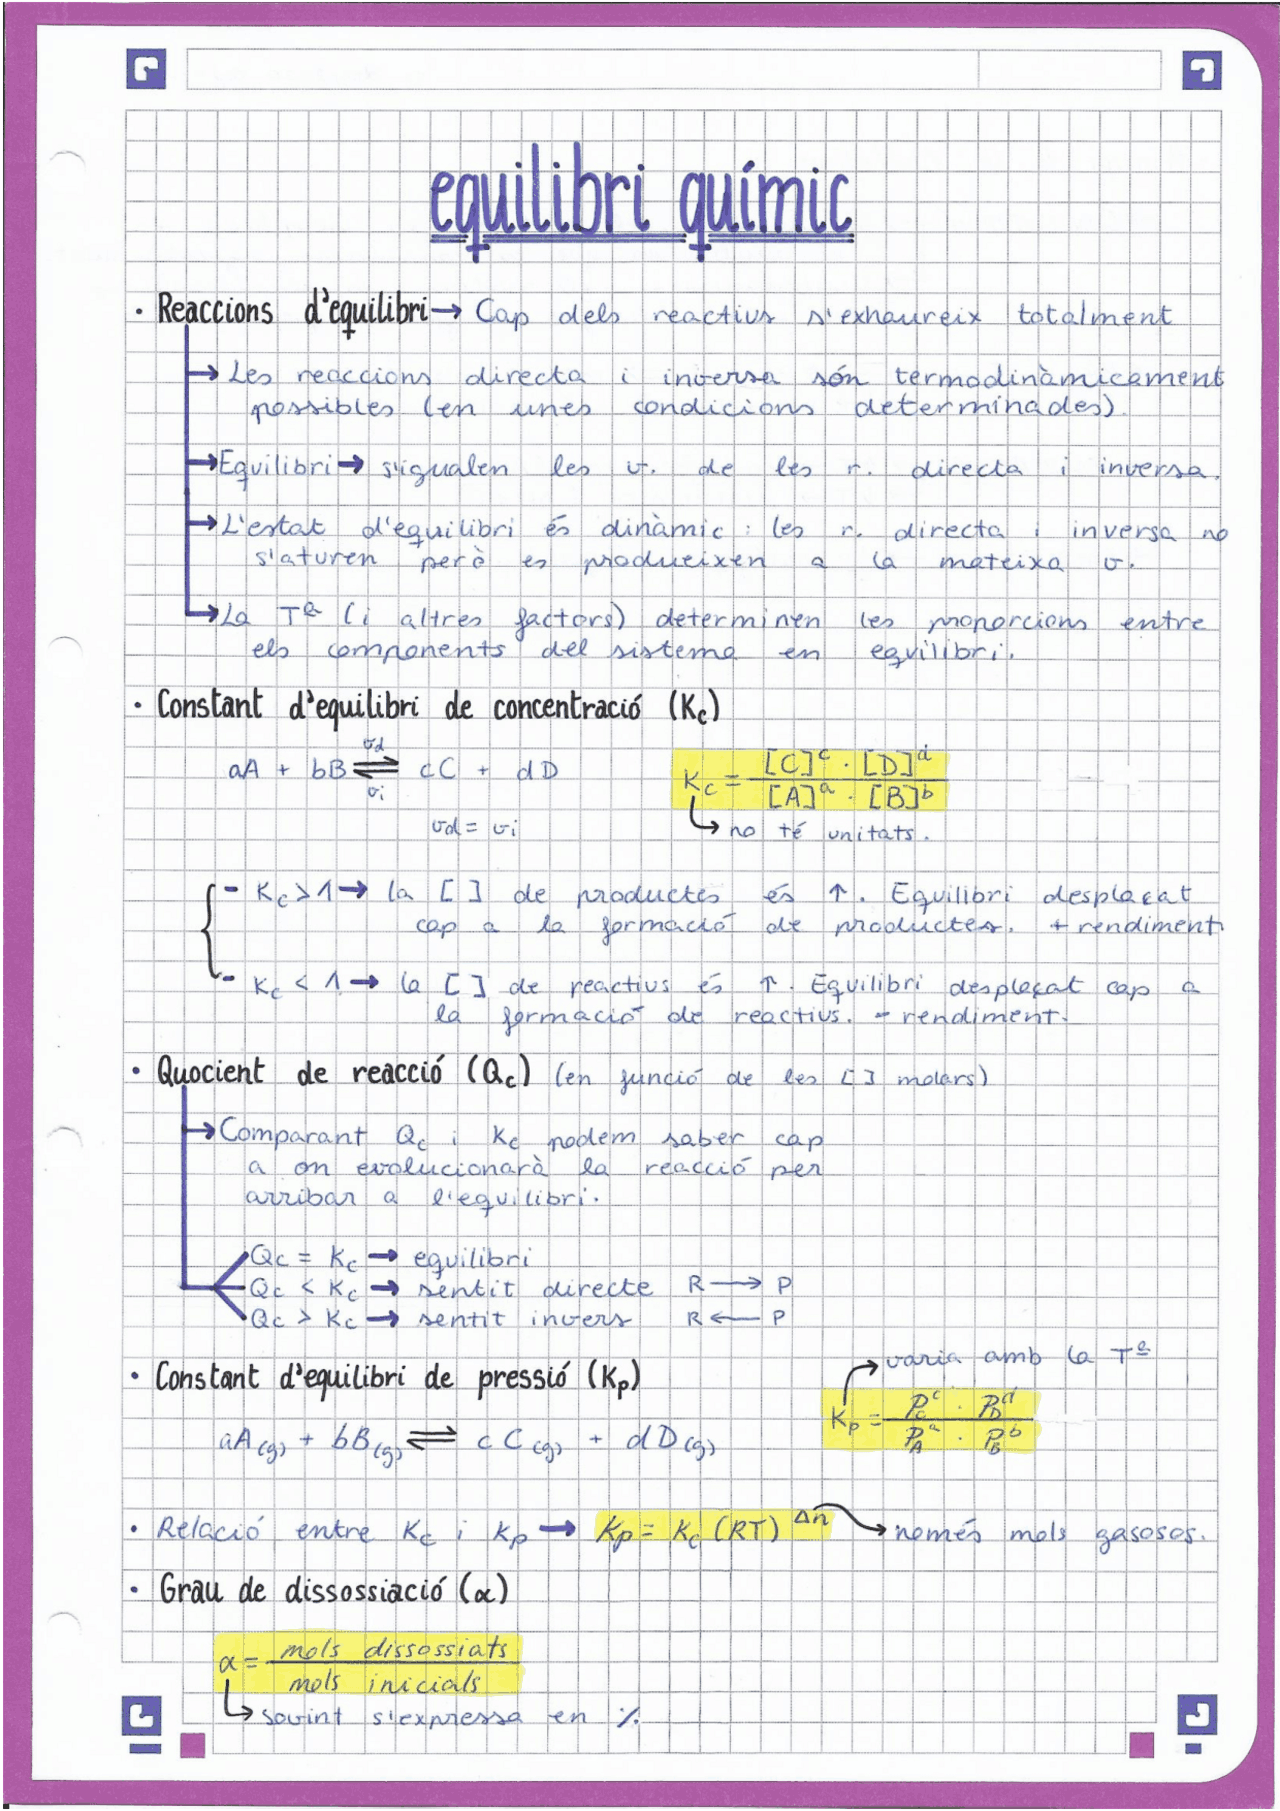 equilibri químic
· Reaccions d'equilibri → Cap dels reactius s'exhaureix totalment
→ Les reaccions directa i inversa són termodinàmicament
possibles (en unes condicions determinades).
→ Equilibri → s'igualen les v. de les r. directa i inversa.
→ L'estat d'equilibri és dinàmic: les r. directa i inversa no
s'aturen però es produeixen a la mateixa v.
→ La Tª (i altres factors) determinen les proporcions entre
els components del sistema en equilibri.
· Constant d'equilibri de concentració (Kc)
aA + bB ⇌ cC + dD
vd
vi
vd = vi
Kc = [C]^c · [D]^d / [A]^a · [B]^b
↳ no té unitats.
- Kc > 1 → la [ ] de productes és ↑. Equilibri desplaçat
cap a la formació de productes. + rendiment
- Kc < 1 → la [ ] de reactius és ↑. Equilibri desplaçat cap a
la formació de reactius. - rendiment.
· Quocient de reacció (Qc) (en funció de les [ ] molars)
→ Comparant Qc i Kc podem saber cap
a on evolucionarà la reacció per
arribar a l'equilibri.
Qc = Kc → equilibri
Qc < Kc → sentit directe R → P
Qc > Kc → sentit invers R ← P
· Constant d'equilibri de pressió (Kp)
→ varia amb la Tª
aA(g) + bB(g) ⇌ cC(g) + dD(g)
Kp = Pc^c · PD^d / PA^a · PB^b
· Relació entre Kc i Kp → Kp = Kc (RT)^Δn → només mols gasosos.
· Grau de dissossiació (α)
α = mols dissossiats / mols inicials
↳ sovint s'expressa en %